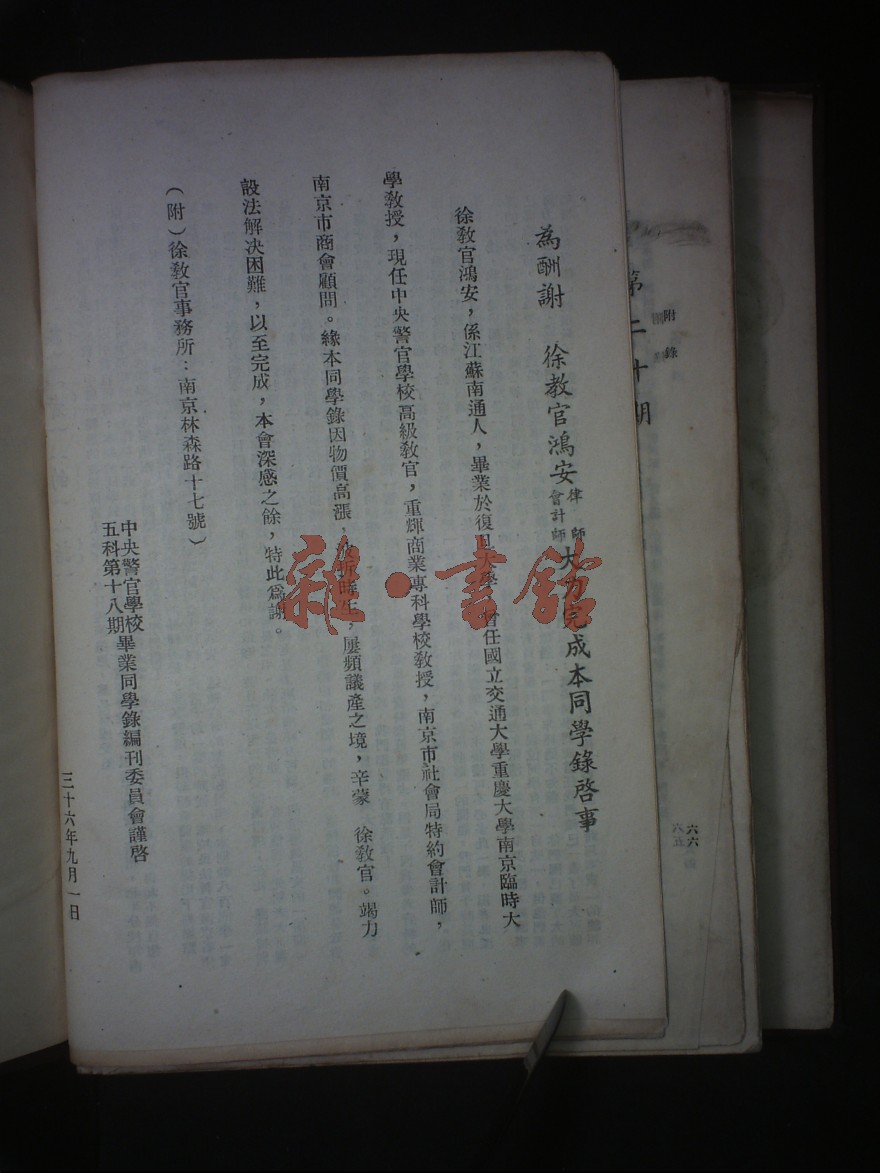 為酬謝 徐教官鴻安律師會計師大力完成本同學錄啓事
徐教官鴻安，係江蘇南通人，畢業於復旦大學 曾任國立交通大學重慶大學南京臨時大
學教授，現任中央警官學校高級教官，重輝商業專科學校教授，南京市社會局特約會計師，
南京市商會顧問。緣本同學錄因物價高漲，屢頻議產之境，辛蒙 徐教官。竭力
設法解决困難，以至完成，本會深感之餘，特此爲謝。
（附）徐教官事務所：南京林森路十七號）
中央警官學校
五科第十八期畢業同學錄編刊委員會謹啓
三十六年九月一日
附錄
第二十期
六六
六五
雜·書館